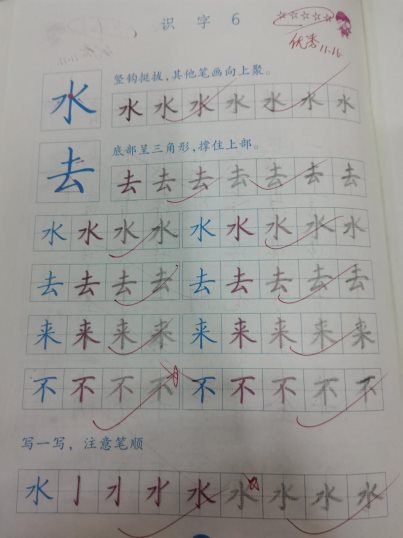 识 字 6
☆☆☆☆☆
优秀 11.16.
竖钩挺拔，其他笔画向上聚。
水 水 水 水 水 水 水 水
底部呈三角形，撑住上部。
去 去 去 去 去 去 去 去
水 水 水 水 水 水 水 水 水
去 去 去 去 去 去 去 去 去
来 来 来 来 来 来 来 来 来
不 不 不 不 不 不 不 不 不
写一写，注意笔顺
水 亅 水 水 水 水 水